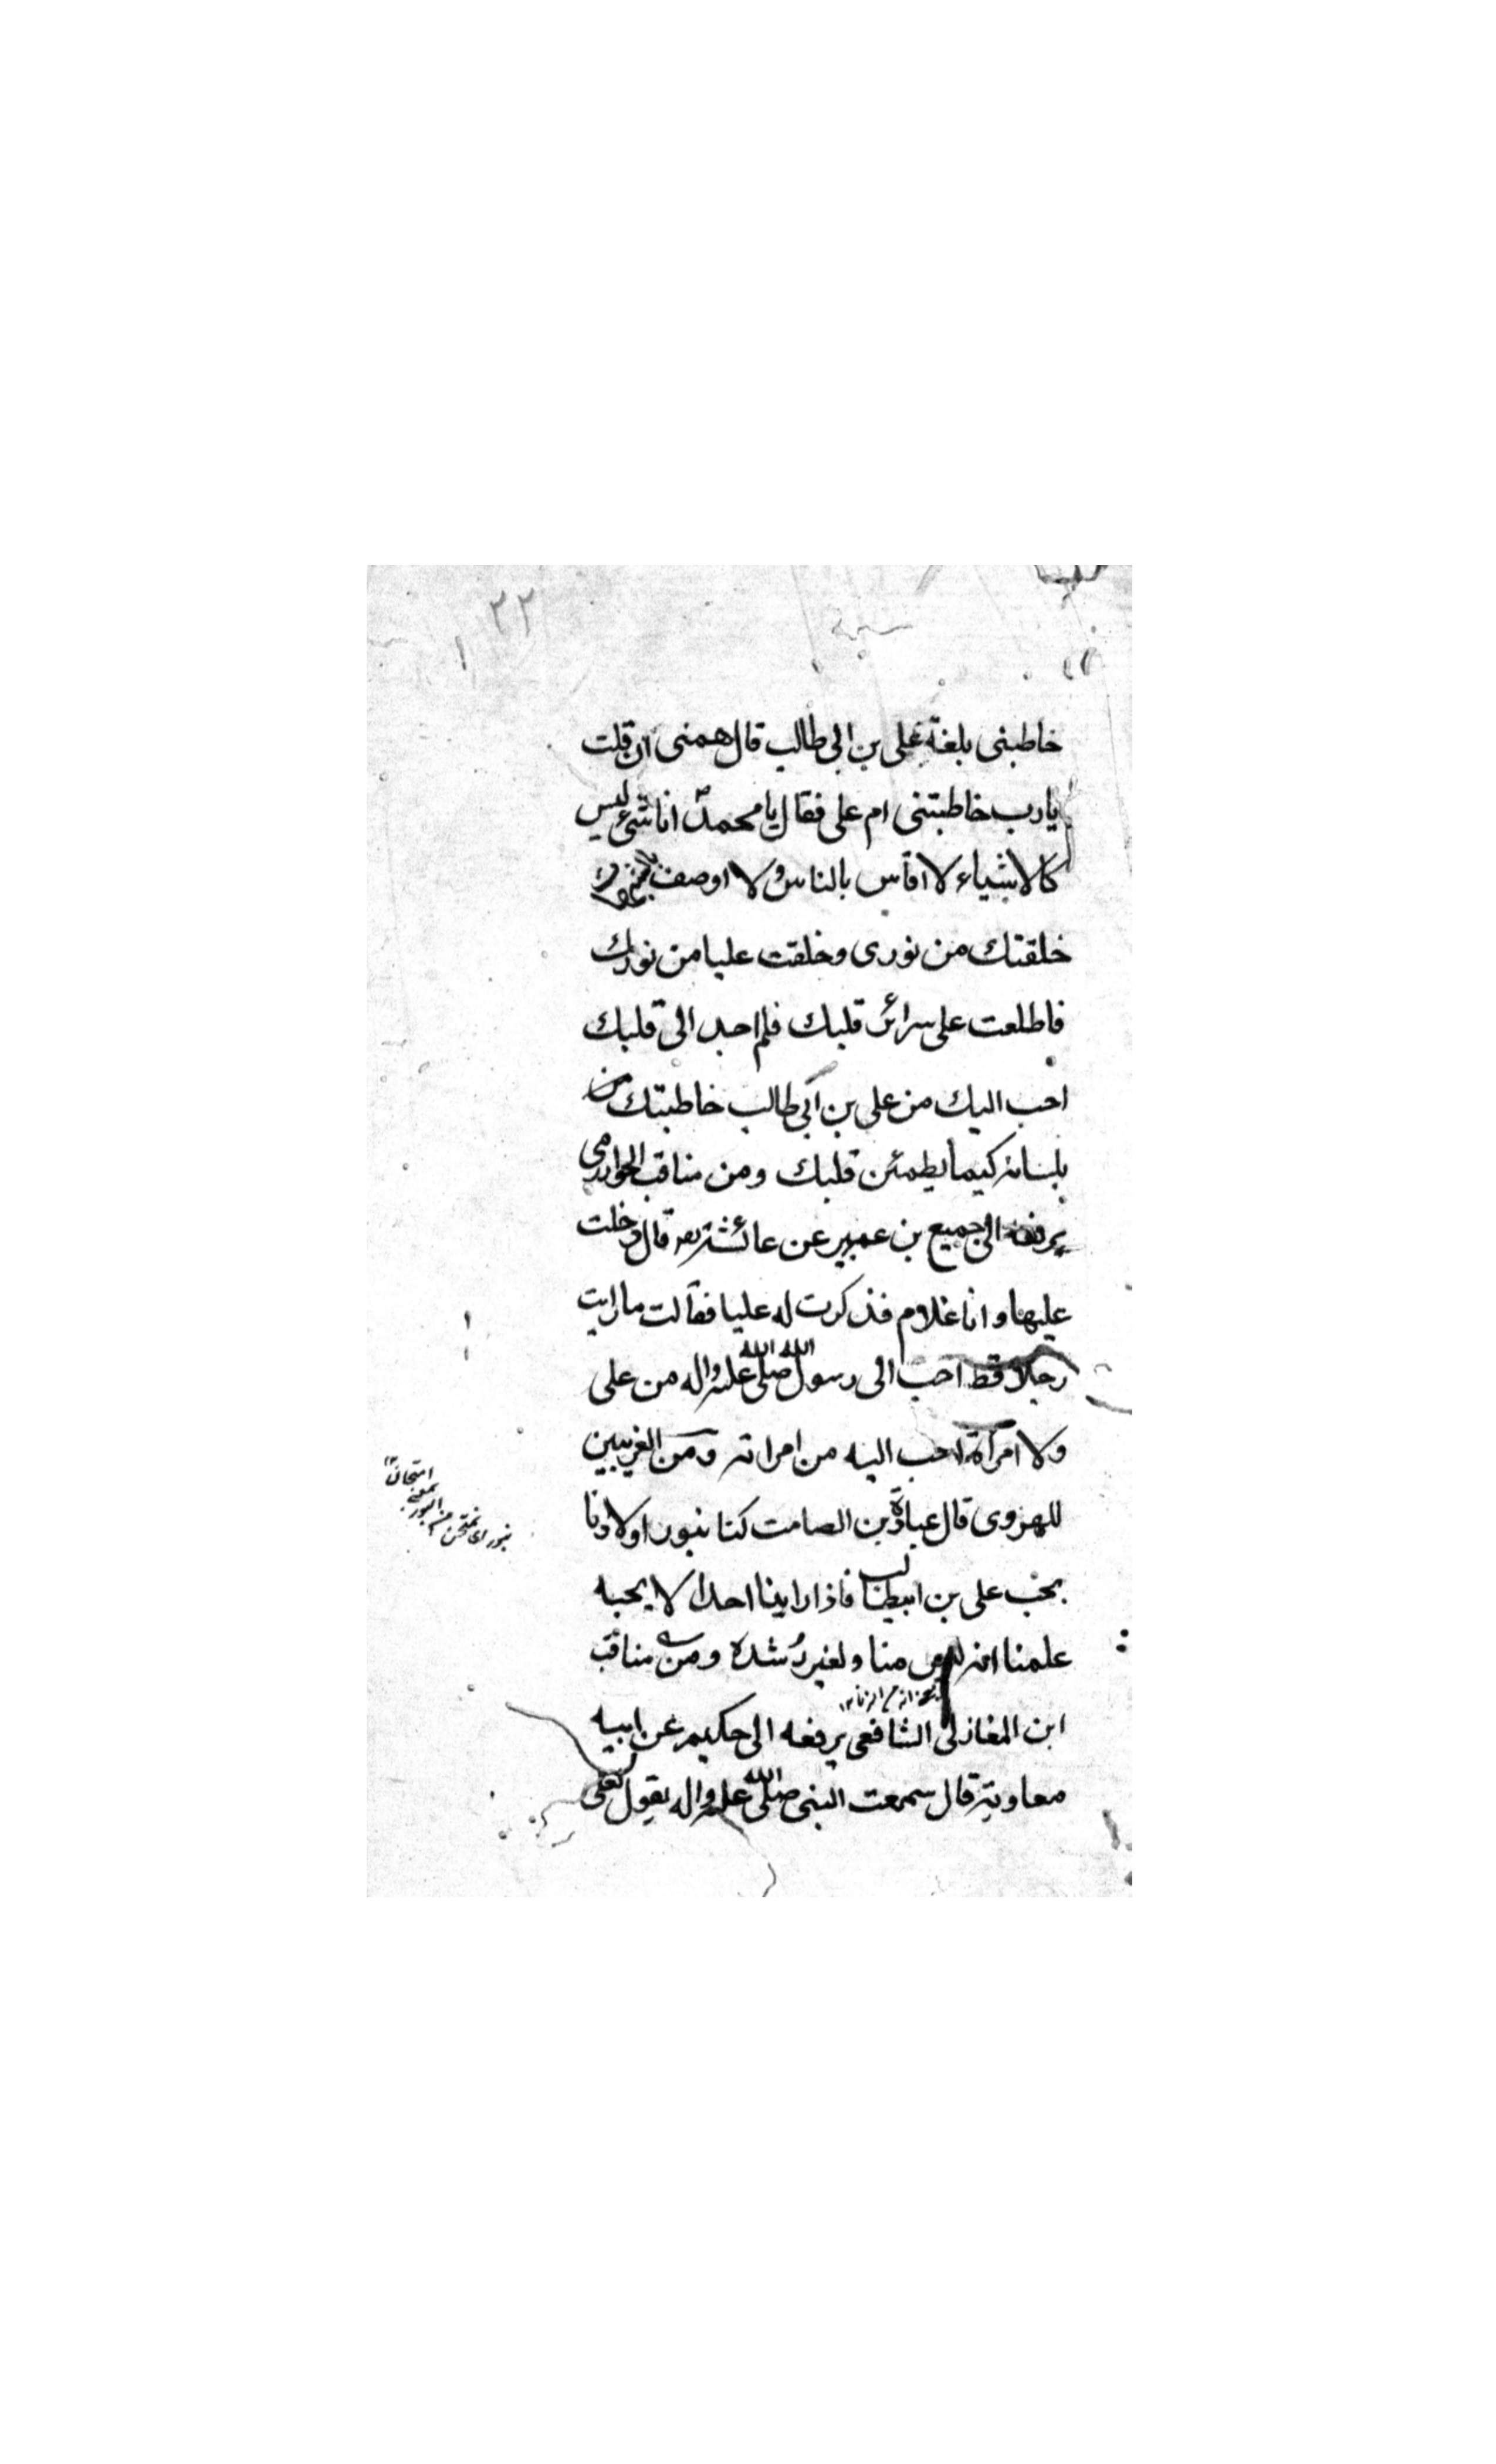 ٢٢
خاطبنى بلغة على بن ابى طالب قال همنى ان قلت
يارب خاطبتنى ام على فقال يا محمد انا شئ ليس
كالاشياء لا اقاس بالناس ولا اوصف
خلقتك من نورى وخلقت عليا من نورك
فاطلعت على سرائر قلبك فلم احد الى قلبك
احب اليك من على بن ابى طالب خاطبتك من
بلسانه كيما يطمئن قلبك ومن مناقب الخوارزمى
يرفعه الى جميع بن عمير عن عائشة قال دخلت
عليها وانا غلام فذكرت له عليا فقالت ما رايت
رجلا قط احب الى رسول الله صلى الله عليه واله من على
ولا امرأة احب اليه من امراته ومن الغريبين
للهروى قال عبادة بن الصامت كنا نبور اولادنا
بحب على بن ابيطالب فاذا راينا احدا لا يحبه
علمنا انه ليس منا ولغير رشده ومن مناقب
ابن المغازلى الشافعى يرفعه الى حكيم عن ابيه
معاوية قال سمعت النبى صلى الله عليه واله يقول لعلى
نبور اى نمتحن من البور بمعنى امتحان ١٢